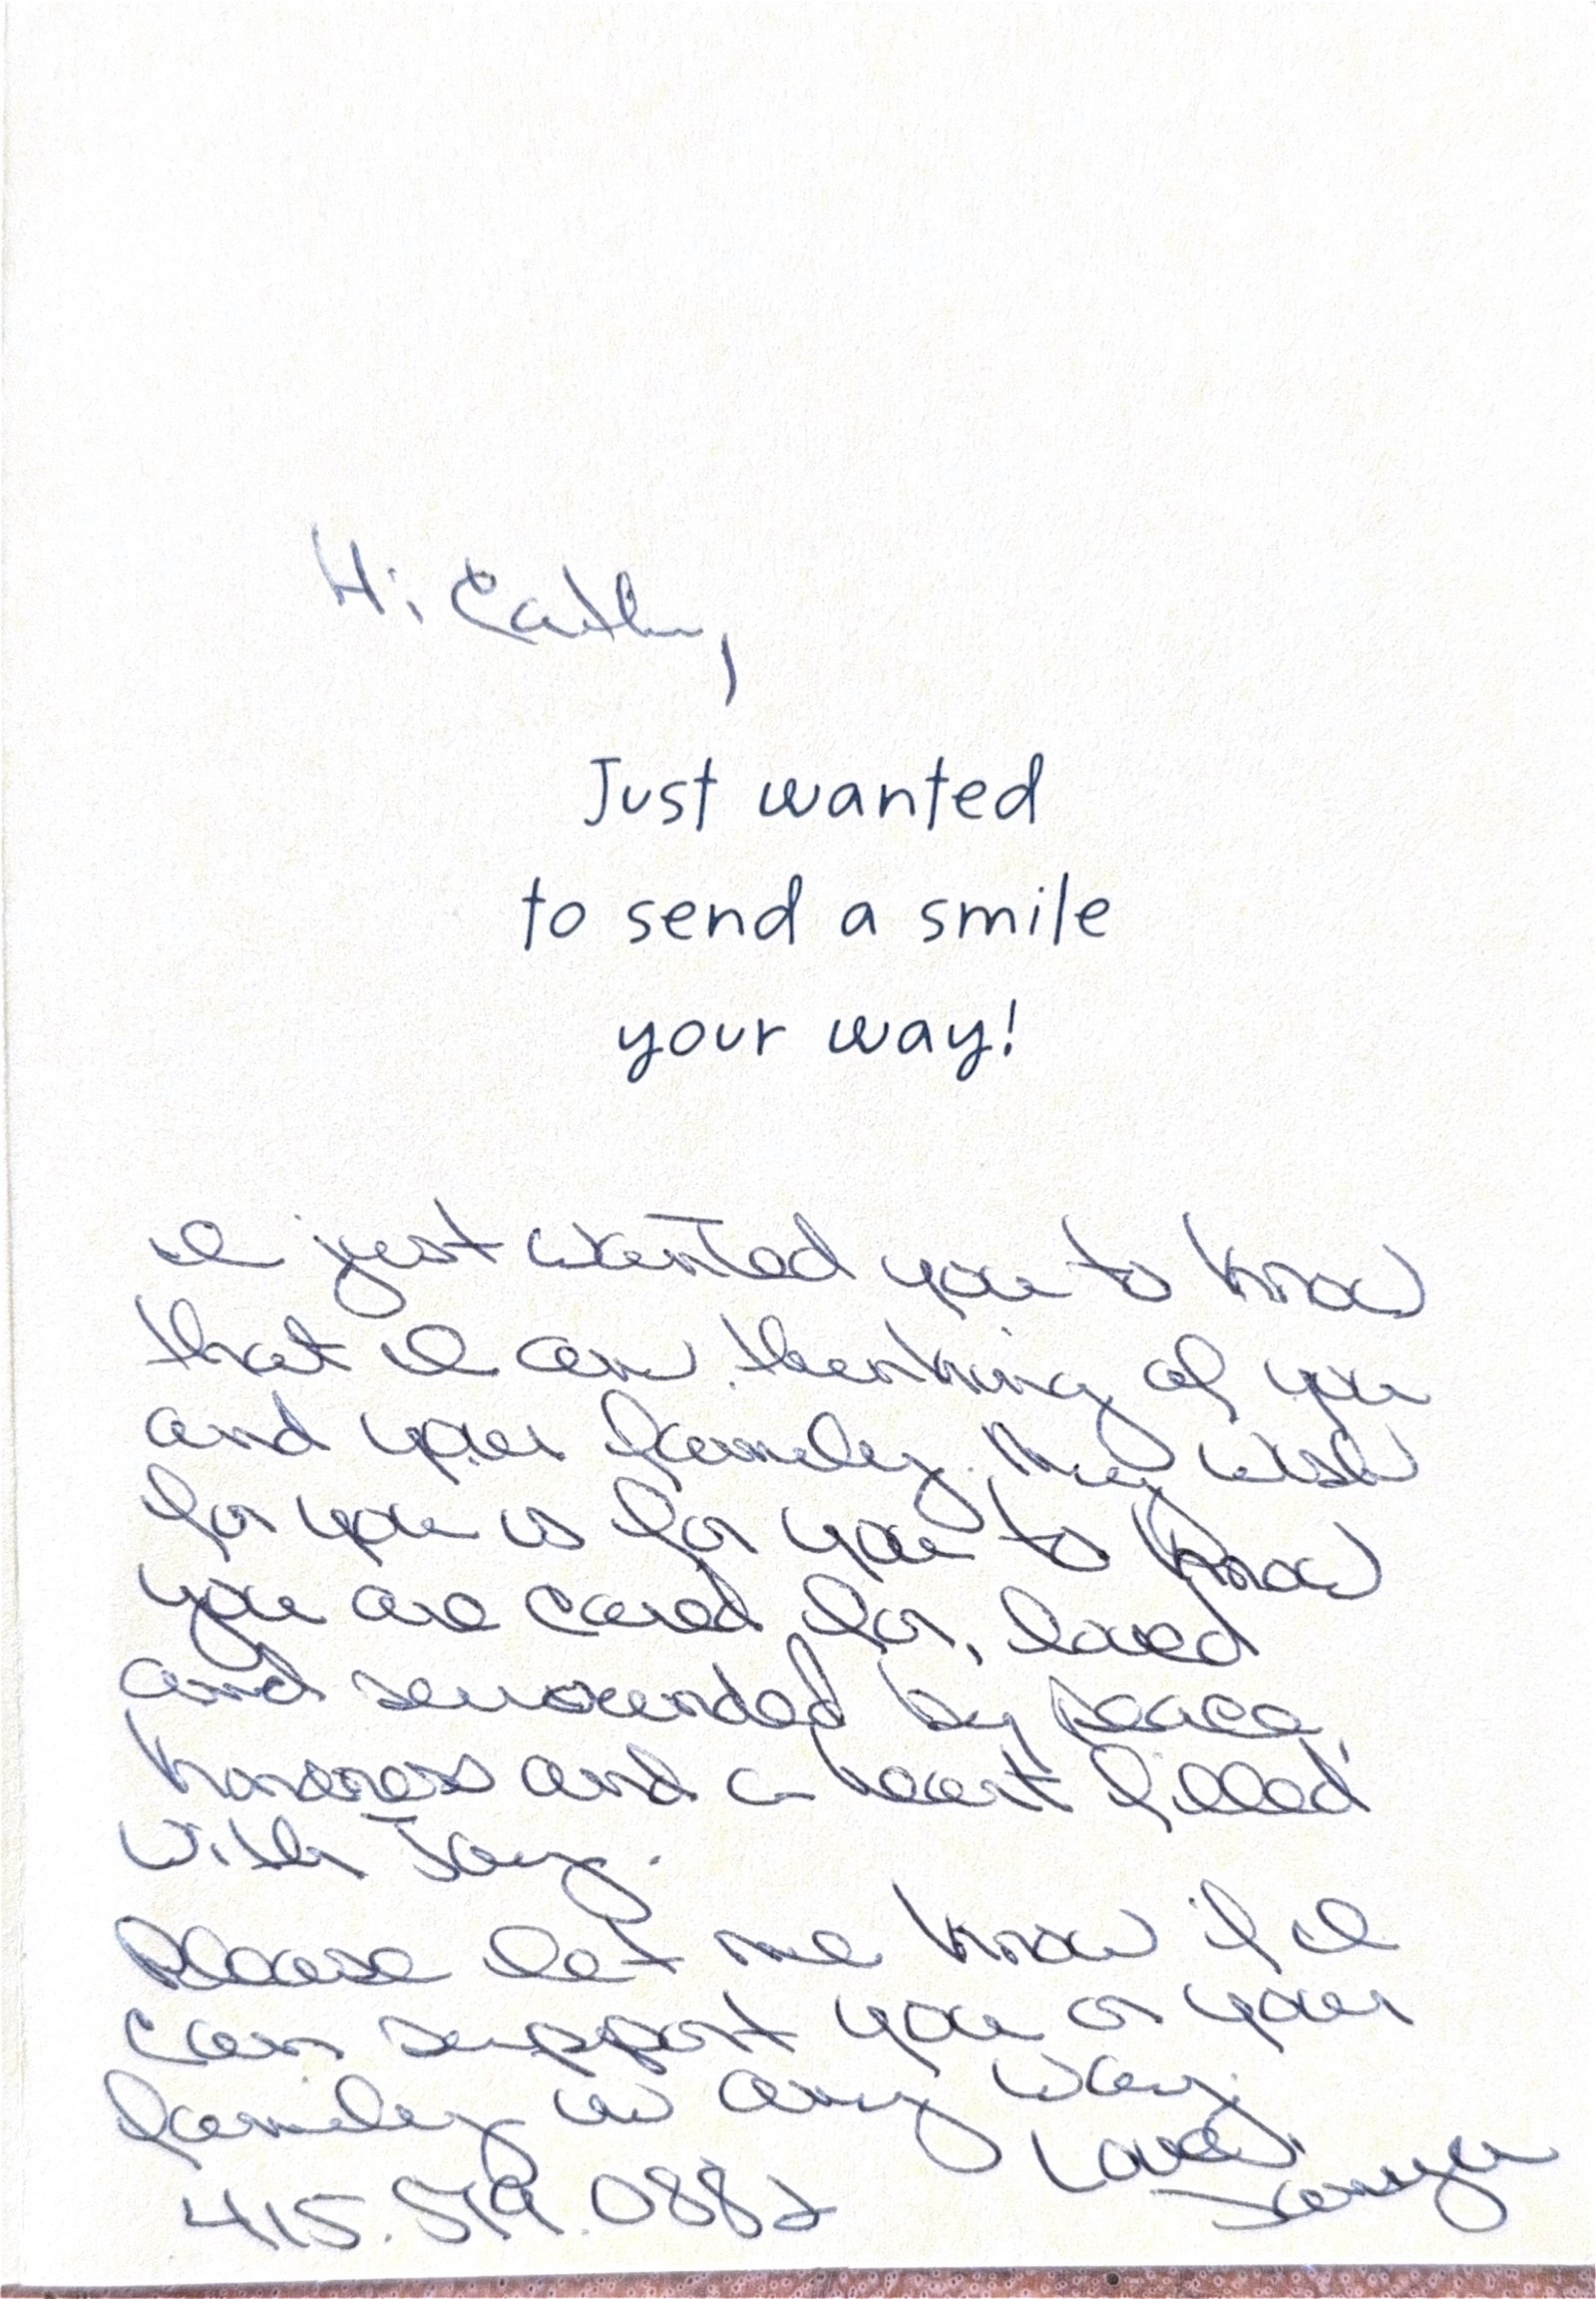 Hi Cathy,
Just wanted
to send a smile
your way!
I just wanted you to know
that I am thinking of you
and your family. My wish
for you is for you to know
you are cared for, loved
and surrounded by peace,
kindness and a heart filled
with Joy.
Please let me know if I
can support you or your
family in any way.
Love,
Tanya
415.519.0882